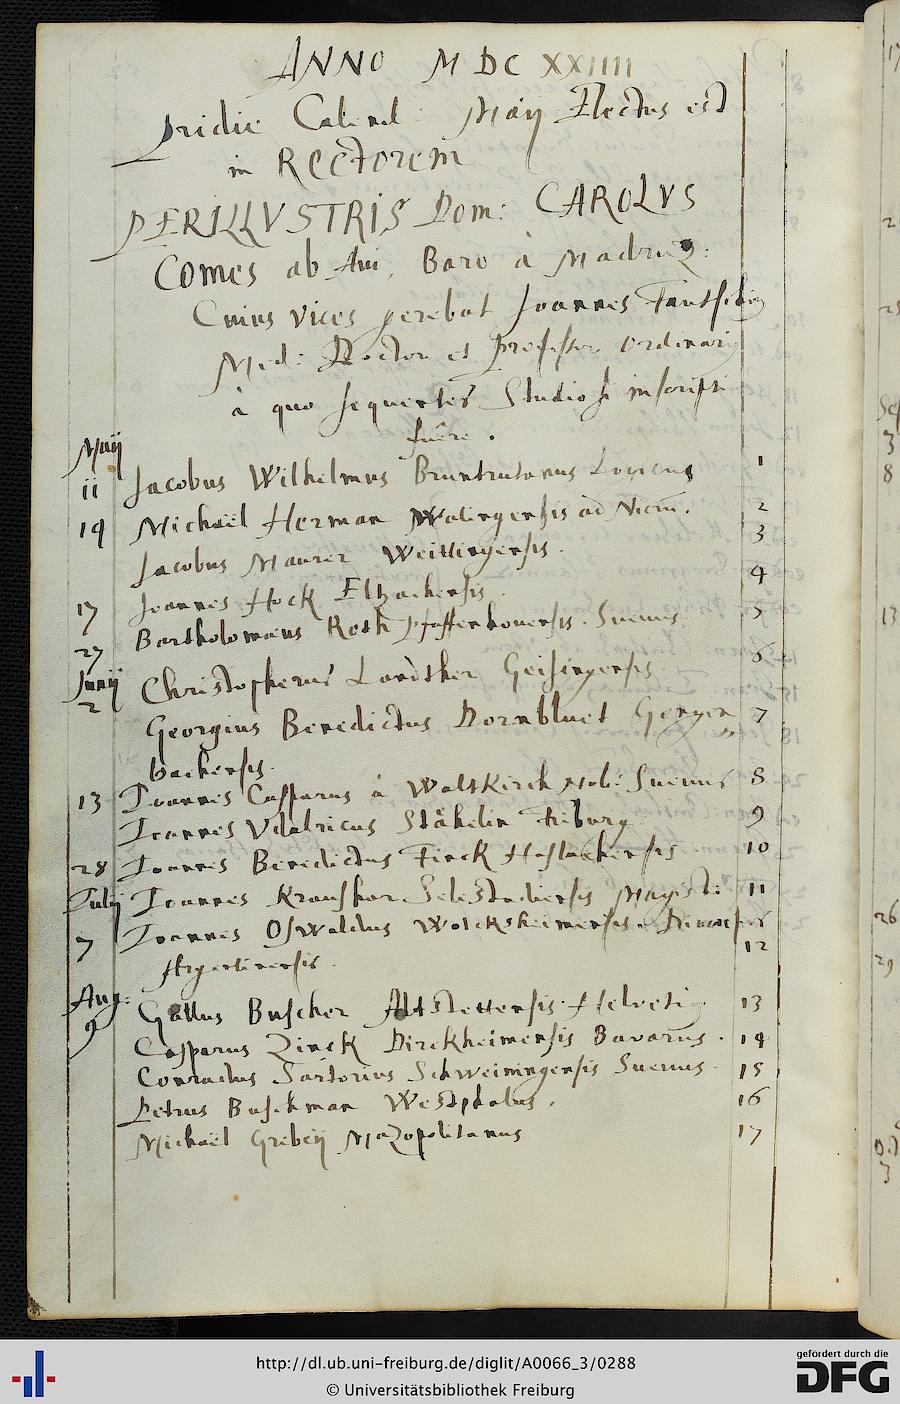 ANNO MDCXXIIII
Pridie Calend. Maij Electus est
in Rectorem
PERILLVSTRIS Dom: CAROLVS
Comes ab Avi, Baro à Madruz:
Cuius vices gerebat Joannes
Med: Doctor et Professor Ordinarij
à quo sequentes Studiosi inscripti
fuêre.
Maij
11 Jacobus Wilhelmus Bruntrutanus Logicus 1
14 Michaël Herman Walingensis ad Nicrũ. 2
Jacobus Maurer Weittingensis. 3
17 Joannes Hock Eltzachensis. 4
27 Bartholomæus Roth Pfaffenhouensis. Sueuus. 5
Junij
2 Christopherus Geisingensis. 6
Georgius Benedictus Dornbluet Gengen 7
bachensis.
13 Joannes Casparus à Waltkirch Nob: Sueuus 8
Joannes Vdalricus Stähelin Friburg. 9
28 Joannes Benedictus Finck Haslachensis 10
Julij Joannes Selestadiensis Magist: 11
7 Joannes Oswaldus Wolcksheimensis. Dioeces 12
Argentinensis.
Aug:
9 Gallus Buscher Altstettensis. Helvetiq 13
Casparus Zinck Dirckheimensis Bavarus. 14
Conradus Sartorius Schweiningensis Sueuus. 15
Petrus Buschman Westphalus. 16
Michaël 17
http://dl.ub.uni-freiburg.de/diglit/A0066_3/0288
© Universitätsbibliothek Freiburg
gefördert durch die
DFG